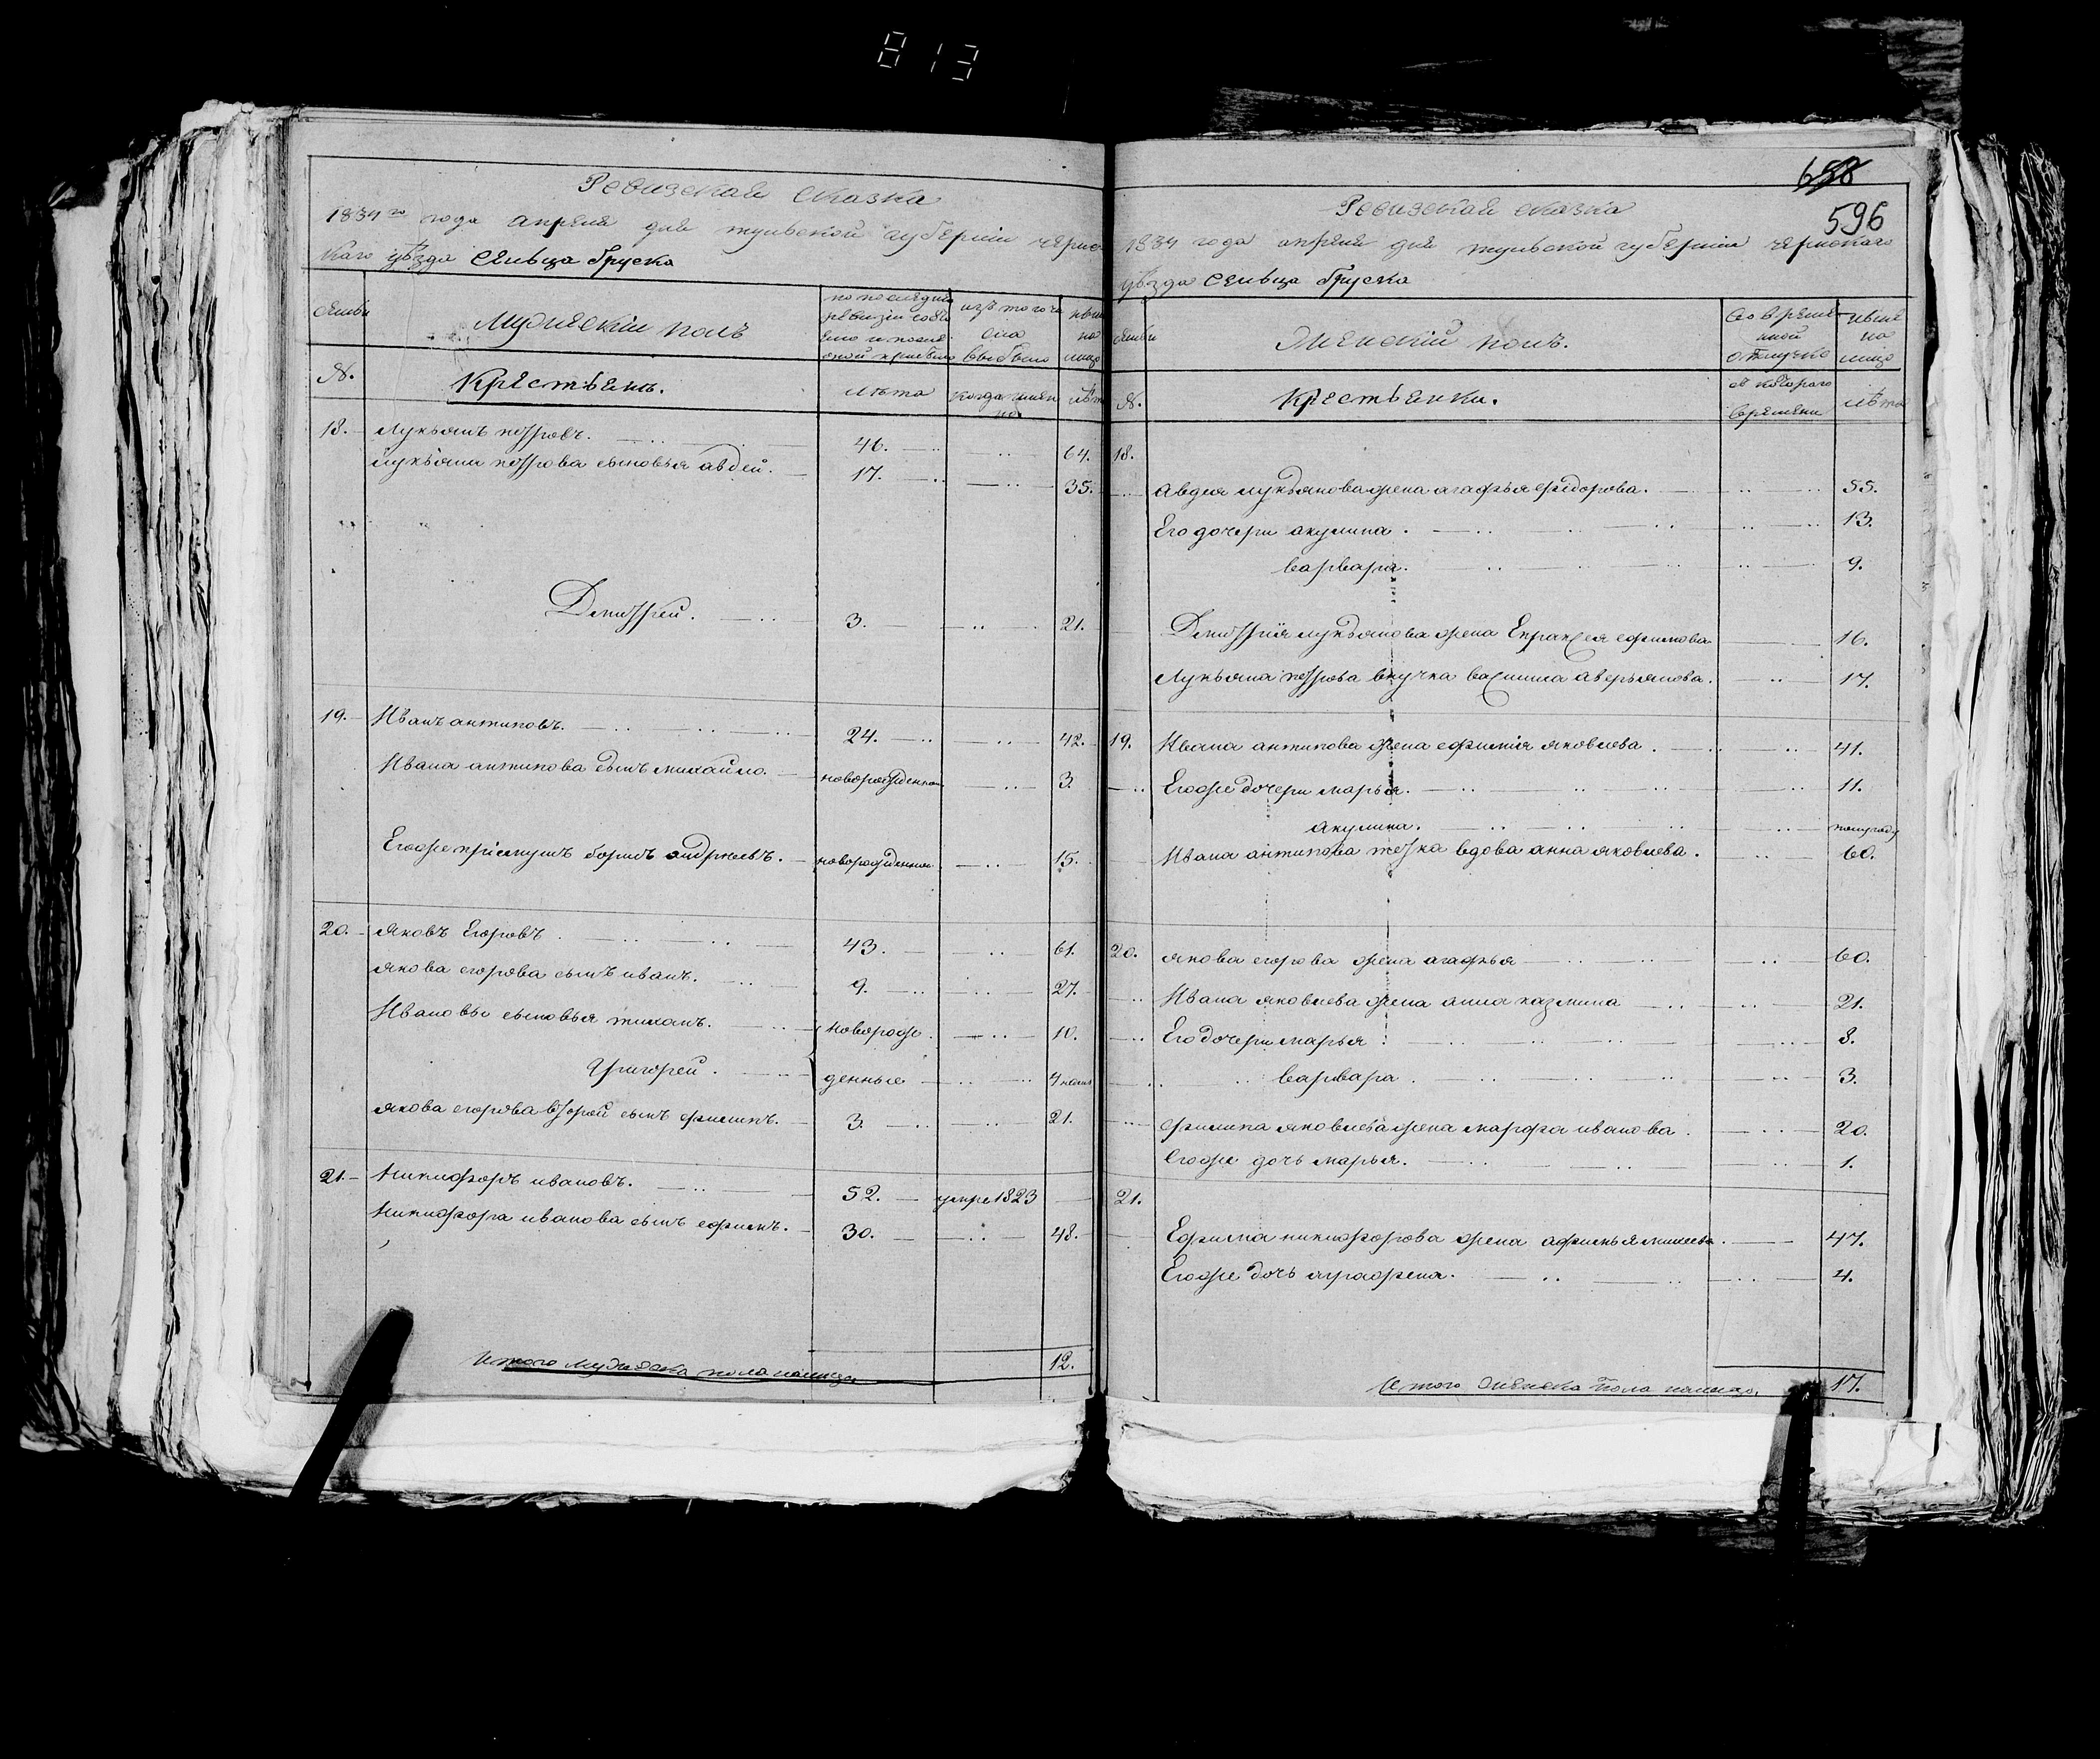 813
Ревизская сказка
1834го года апреля дня тульской губерніи чернс
каго уѣзда сельца Груска
семьи
Мужескій полъ
по последней ревизіи состо
яло и после оной прибыло
изъ того числа выбыло
ныне на лицо
№.
Крестьянъ.
лѣта
когда имянно
лѣта
18. Лукьянъ петровъ. 46. 64.
лукьяна петрова сыновья авдей. 17. 35.
Дмитрей. 3. 21.
19. Иванъ антиповъ. 24. 42.
Ивана антипова сынъ михайло. новорожденной 3.
Егоже пріемышъ борисъ андреевъ. новорожденной 15.
20. яковъ Егоровъ. 43. 61.
якова егорова сынъ иванъ. 9. 27.
Ивановы сыновья тиханъ. новорож 10.
Григорей. денные 4
якова егорова второй сынъ филипъ. 3. 21.
21. никифоръ ивановъ. 52. умре 1823
никифора иванова сынъ ефимъ. 30. 48.
Итого мужеска пола налицо 12.
658
596
Ревизская сказка
1834 года апреля дня тульской губерніи чернскаго
уѣзда сельца Груска
семьи
Женскій полъ.
во време
нной
отлучке
ныне
на
лицо
№.
Крестьянки.
съ котораго
времени
лѣта
18.
авдея лукьянова жена агафья федорова. 35.
Его дочери акулина. 13.
варвара. 9.
Дмитрія лукьянова жена Епраксея ефимова 16.
Лукьяна петрова внучка васишиса аверьянова. 17.
19. Ивана антипова жена ефимія яковлева. 41.
Егоже дочери марья. 11.
акулина. полугоду
Ивана антипова тетка вдова анна яковлева. 60.
20. якова егорова жена агафья 60.
Ивана яковлева жена анна казмина 21.
Его дочери марья 8.
варвара. 3.
филипа яковлева жена марфа иванова. 20.
Егоже дочь марья. 1.
21.
Ефима никифорова жена афимья михеева. 47.
Егоже дочь аграфена. 4.
Итого Женска пола налицо. 17.